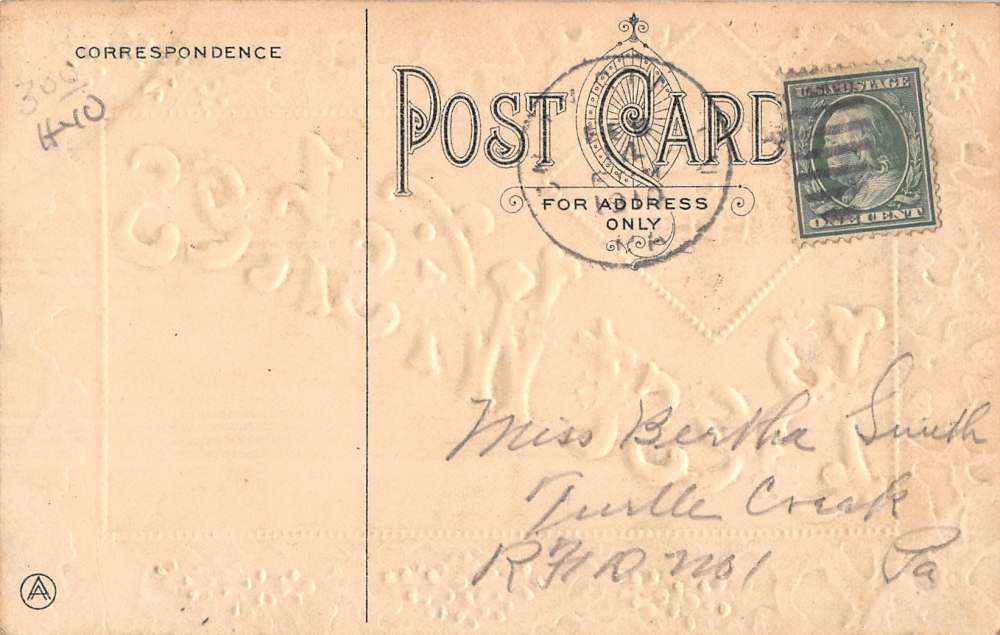 CORRESPONDENCE
300
440
POST CARD
FOR ADDRESS
ONLY
U.S. POSTAGE
ONE CENT
Miss Bertha Smith
Turtle Creek
RFD No 1 Pa